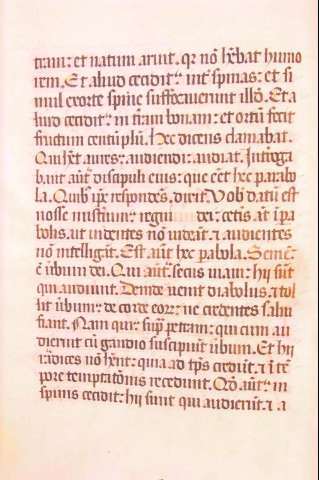 tram: et natum aruit. qr nō hēbat humo
rem. Et aliud cecidit: int spinas: et si
mul exorte spine suffocaverunt illō. Et a
liud cecidit: in tram bonam: et ortū fecit
fructum centuplū. Hec dicens clamabat.
Qui hēt aures: audiendi: audiat. Intoga
bant aūt discipuli eius: que eēt hec parabo
la. Quibꝰ ipe respondēs. dixit. Vobꝰ datū est
nosse misterium: regni dei: cetis. aūt i para
bolis. ut uidentes nō uideāt: ⁊ audientes
nō intelligāt. Est. aūt hec pabola. Semē:
ē ūbum dei. Qui aūt: secus uiam: hii sūt
qui audiunt. Deinde uenit diabolus. ⁊ tol
lit ūbum: de corde eorꝝ: ne credentes salui
fiant. Nam qui: supͣ petram: qui cum au
dierint cū gaudio suscipiūt ūbum. Et hii
radices nō hēnt: quia ad tp̄s credūt. ⁊ ī tē
pore temptatōnis recedunt. Qđ aūt: in
spinis cecidit: hii sunt qui audierūt. ⁊ a